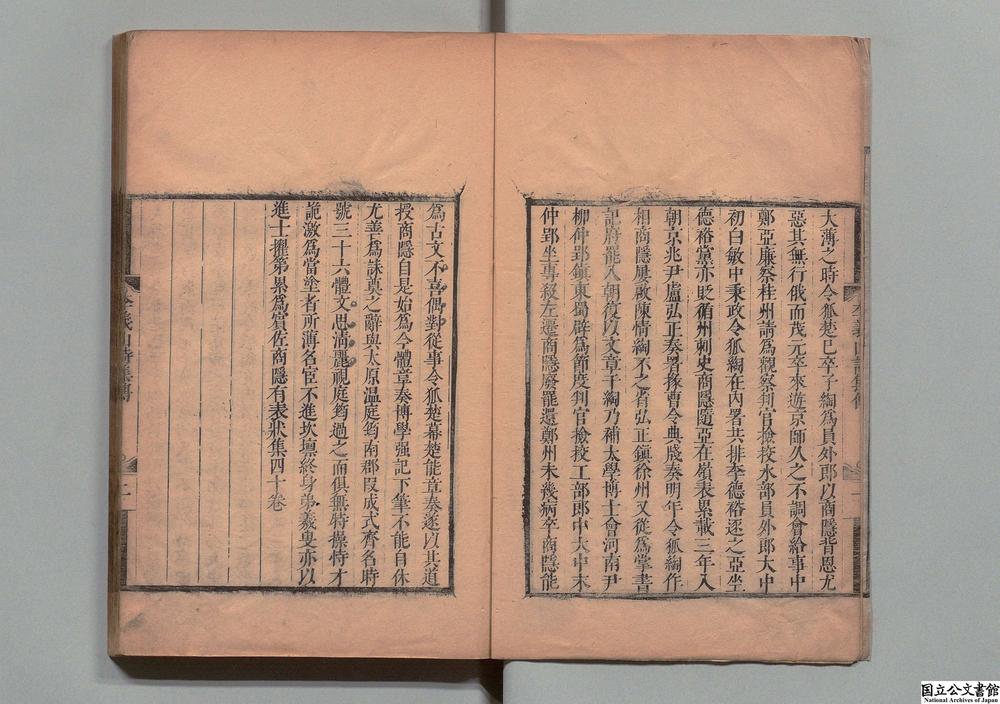 大薄之時令狐楚已卒子綯為員外郎以商隱背恩尤
惡其無行俄而茂元卒來遊京師久之不調會給事中
鄭亞廉察桂州請為觀察判官檢挍水部員外郎大中
初白敏中秉政令狐綯在内署共排李德裕逐之亞坐
德裕黨亦貶循州刺史商隱隨亞在嶺表累載三年入
朝京兆尹盧弘正奏署掾曹令典牋奏明年令狐綯作
相商隱屢啟陳情綯不之省弘正鎮徐州又從為掌書
記府罷入朝復以文章干綯乃補太學博士會河南尹
柳仲郢鎮東蜀辟為節度判官檢挍工部郎中大中末
仲郢坐專殺左遷商隱廢罷還鄭州未幾病卒商隱能
為古文不喜偶對從事令狐楚幕楚能章奏遂以其道
授商隱自是始為今體章奏博學强記下筆不能自休
尤善為誄奠之辭與太原温庭筠南郡段成式齊名時
號三十六體文思清麗視庭筠過之而俱無特操恃才
詭激為當塗者所薄名宦不進坎壈終身弟羲叟亦以
進士擢第累為賓佐商隱有表狀集四十卷
李義山詩集傳
二
国立公文書館
National Archives of Japan